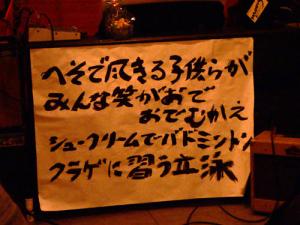 へそで尽きる子僕らが
みんな笑がおで
おでむかえ
シュークリームでバドミントン
クラゲに習う立泳